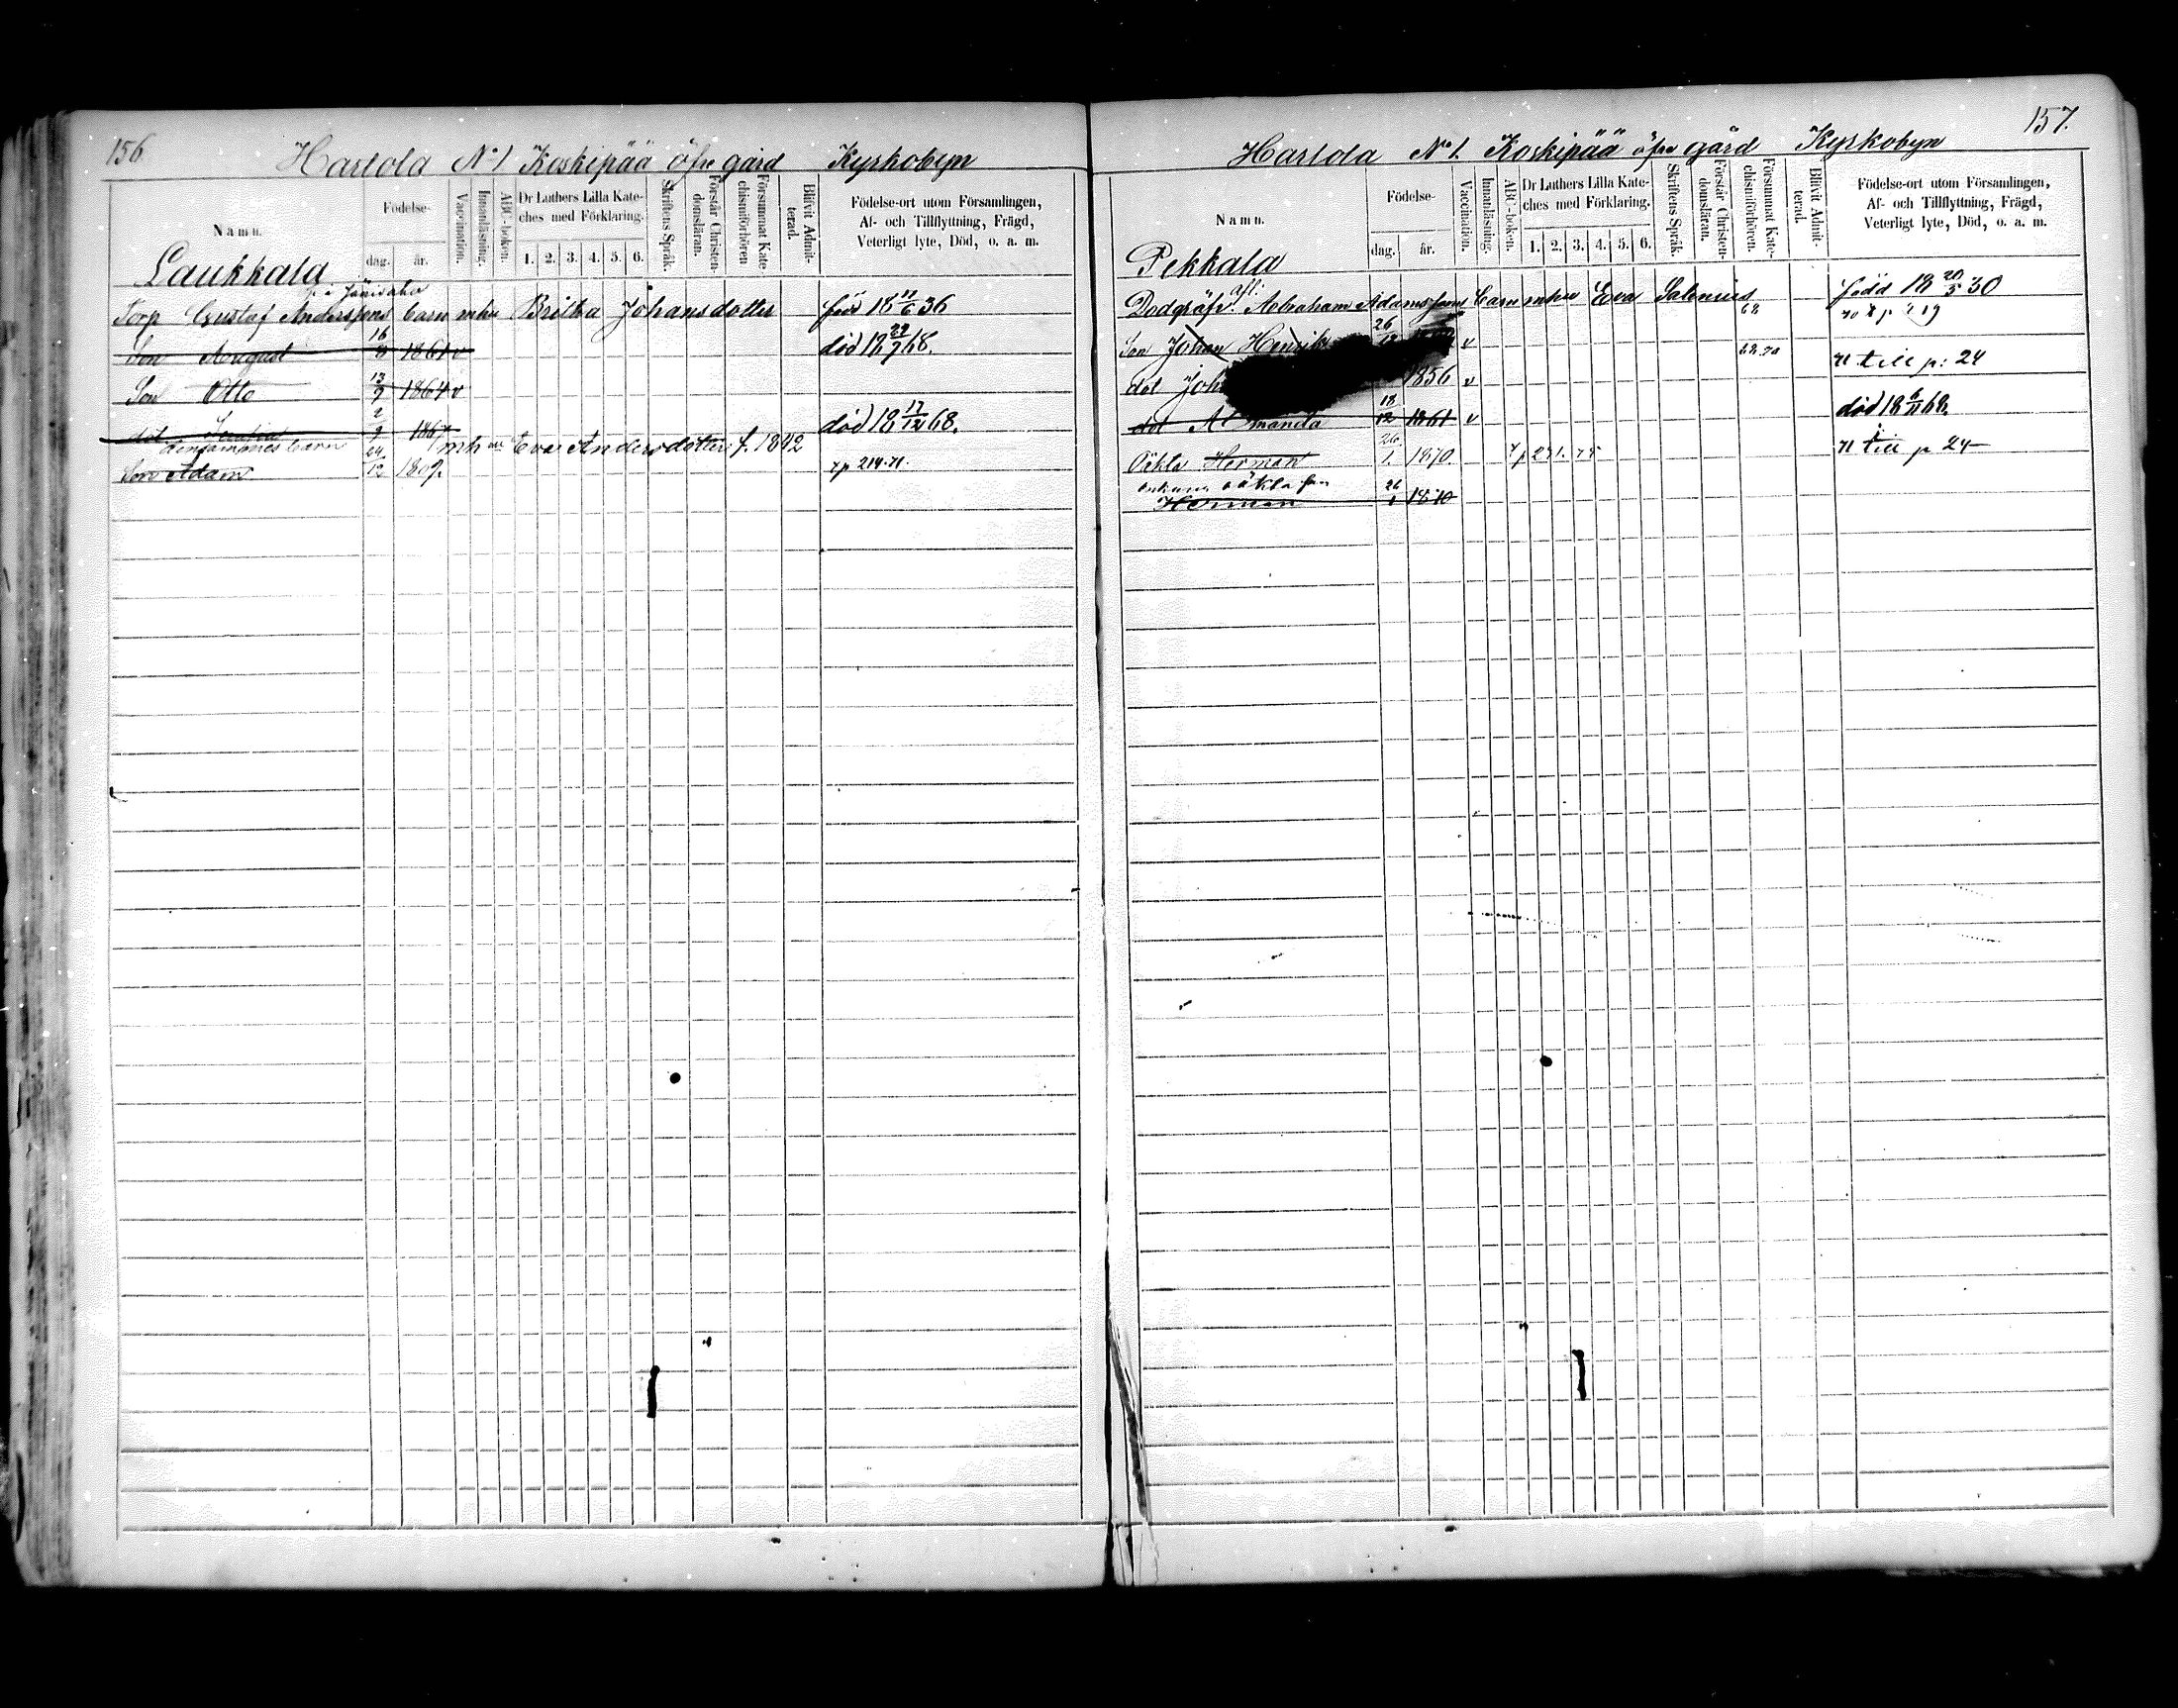 156.
Hartola No 1 Koskipää öfre gård Kyrkobyn
Namn.
Födelse-
dag.
år.
Vaccination.
Innanläsning.
ABC-boken.
Dr Luthers Lilla Kate-
ches med Förklaring.
1. 2. 3. 4. 5. 6.
Skriftens Språk.
Förstår Christen-
domsläran.
Försummat Kate-
chismiförhören
Blifvit Admit-
terad.
Födelse-ort utom Församlingen,
Af- och Tillflyttning, Frägd,
Veterligt lyte, Död, o. a. m.
Laukkala
Torp Gustaf Anderssons barn mhu Britha Johansdotter född 18 11/6 36
Son August 16/8 1861 v död 18 29/7 68.
Son Otto 13/9 1864 v
dot 2/9 1867 död 18 17/12 68.
barn mh Eva Andersdotter f. 1842
Son Adam 24/12 1869. p 214. 71.
157.
Hartola No 1. Koskipää öfre gård Kyrkobyn
Namn.
Födelse-
dag.
år.
Vaccination.
Innanläsning.
ABC-boken.
Dr Luthers Lilla Kate-
ches med Förklaring.
1. 2. 3. 4. 5. 6.
Skriftens Språk.
Förstår Christen-
domsläran.
Försummat Kate-
chismiförhören.
Blifvit Admit-
terad.
Födelse-ort utom Församlingen,
Af- och Tillflyttning, Frägd,
Veterligt lyte, Död, o. a. m.
Pekkala
afl:
Dödgräfv. Abraham Adamssons barn mhu Eva Salenius född 18 20/5 30
Son Johan Henrik 26/12 v 68
dot Joh 1856 v 68.70 71 till p: 24
dot Amanda 18/12 1861 v död 18 6/11 68.
Oäkta Herman 26/1. 1870. 7 p 231. 75 71 till p 24
oäkta son
Herman 26/1 1870